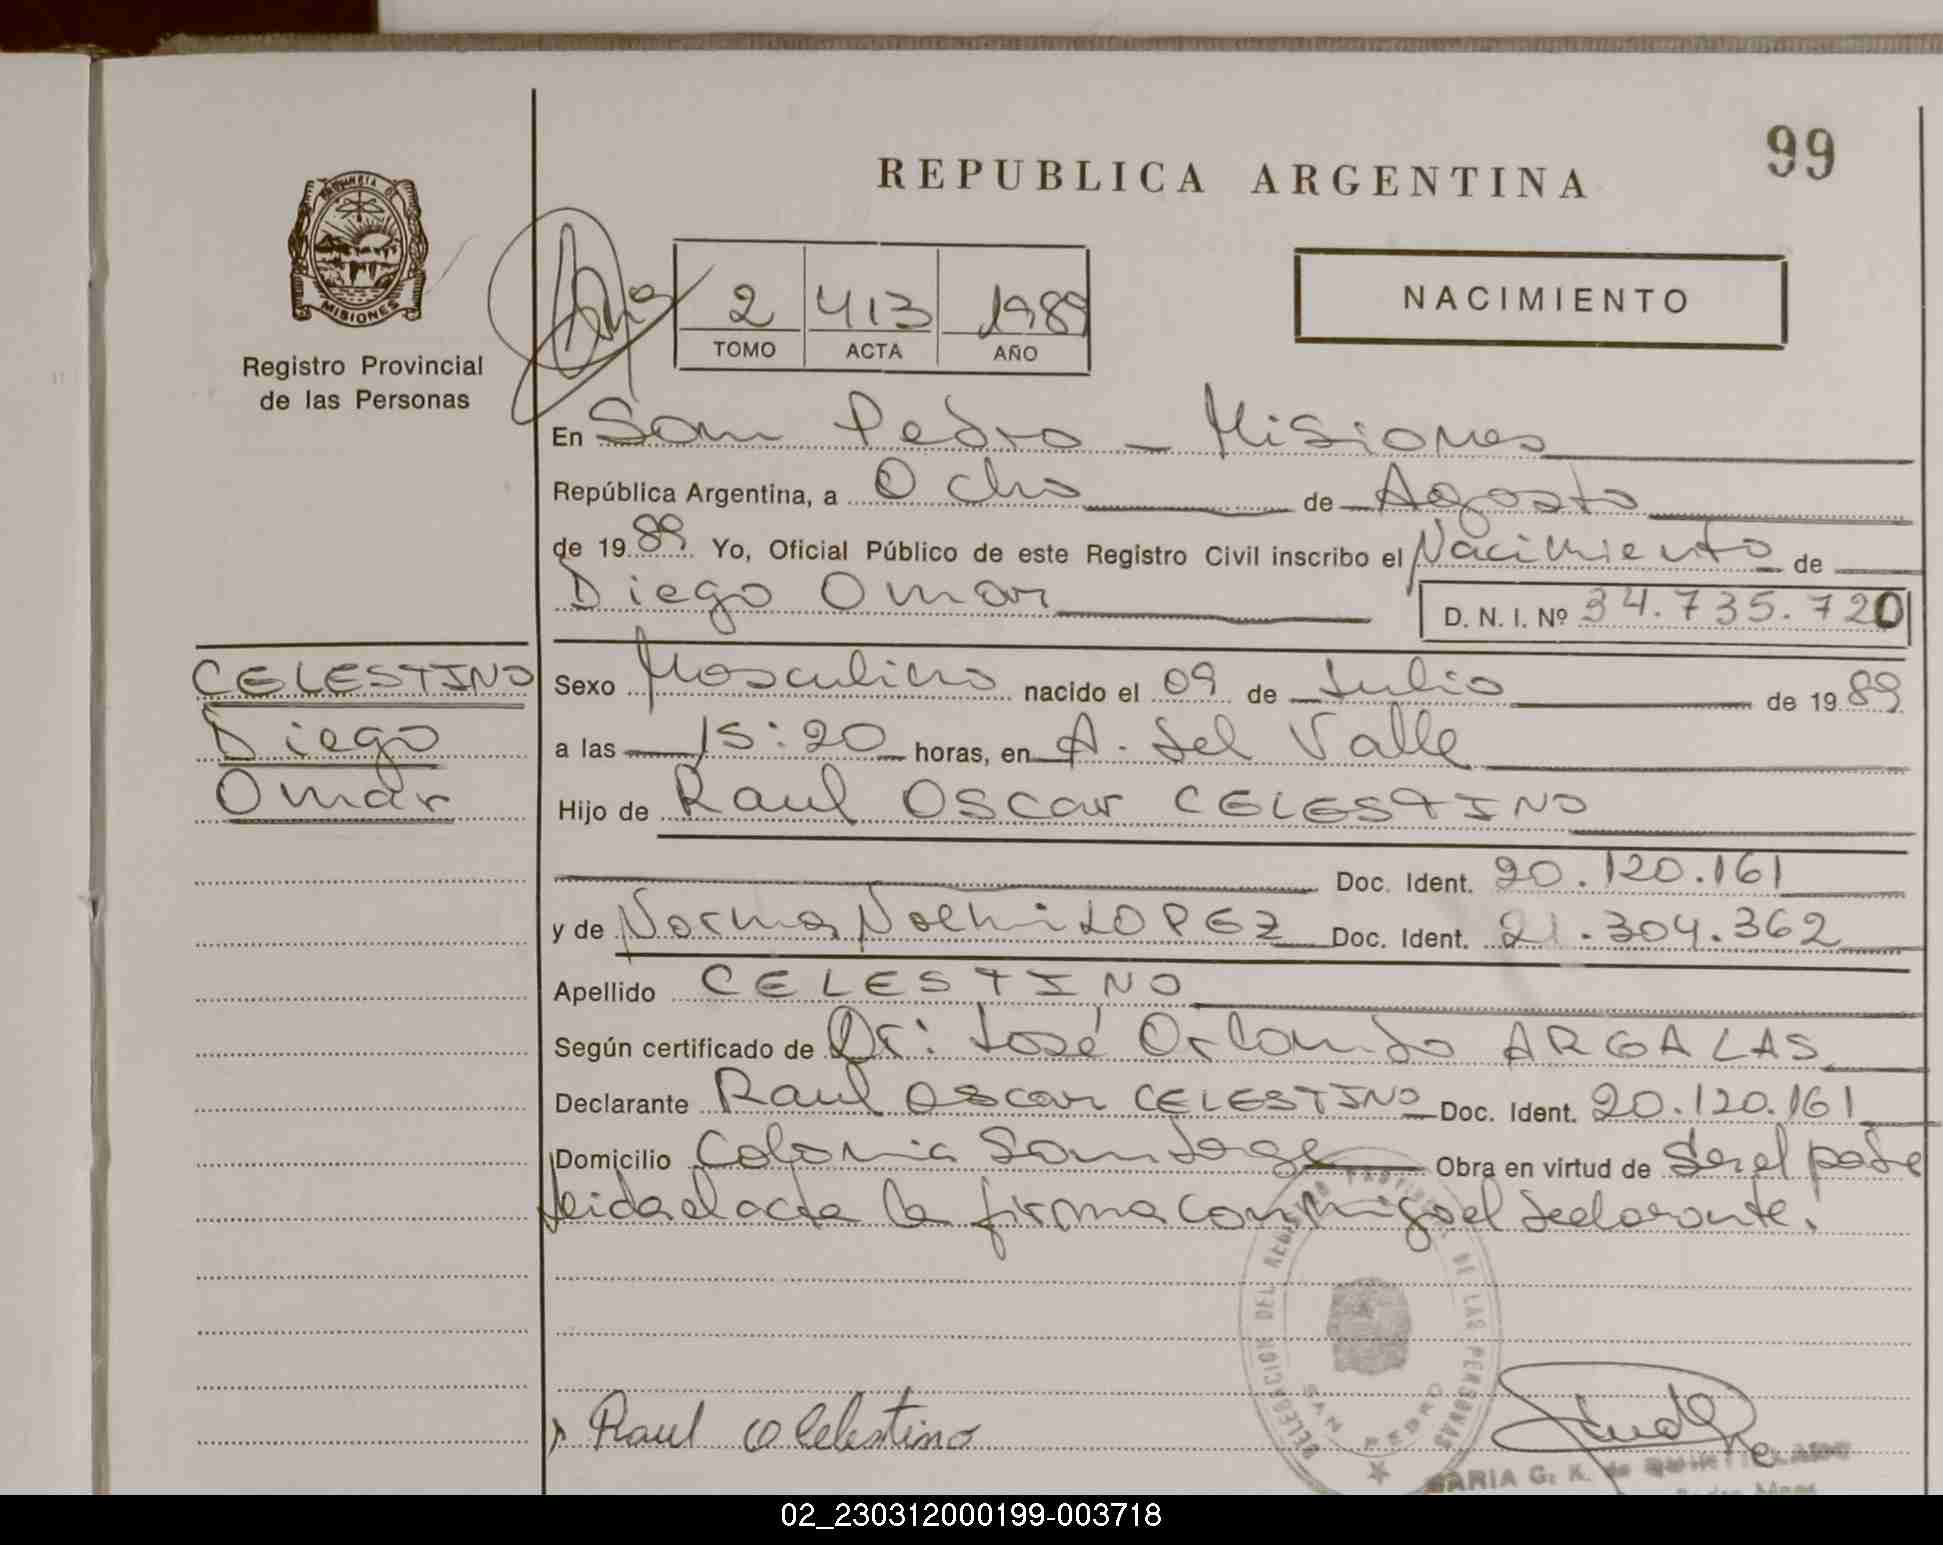 99
REPUBLICA ARGENTINA
PROVINCIA DE
MISIONES
Registro Provincial
de las Personas
NACIMIENTO
2 413 1989
TOMO ACTA AÑO
En San Pedro - Misiones
República Argentina, a Ocho de Agosto
de 1989 Yo, Oficial Público de este Registro Civil inscribo el Nacimiento de
Diego Omar D. N. I. Nº 34.735.720
CELESTINO
Diego
Omar
Sexo Masculino nacido el 09 de Julio de 1989
a las 15:20 horas, en A. del Valle
Hijo de Raul Oscar CELESTINO
Doc. Ident. 20.120.161
y de Norma Noemi LOPEZ Doc. Ident. 21.304.362
Apellido CELESTINO
Según certificado de Dr: José Orlando ARGALAS
Declarante Raul Oscar CELESTINO Doc. Ident. 20.120.161
Domicilio Colonia San Jorge Obra en virtud de Ser el padre
leida el acta la firma conmigo el declarante.
DELEGACION DEL REGISTRO DE LAS PERSONAS
SAN PEDRO
Raul O Celestino
MARIA G. K. de
02_230312000199-003718